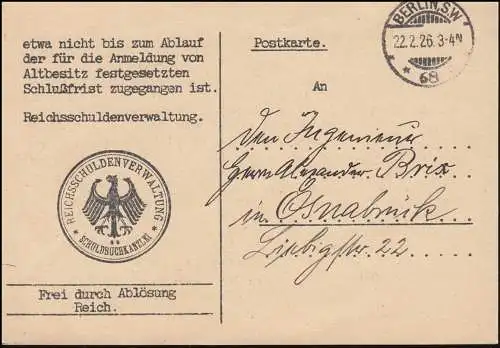 etwa nicht bis zum Ablauf
der für die Anmeldung von
Altbesitz festgesetzten
Schlußfrist zugegangen ist.
Reichsschuldenverwaltung.
REICHSSCHULDENVERWALTUNG
* SCHULDBUCHKANZLEI *
Frei durch Ablösung
Reich.
Postkarte.
BERLIN.SW
22.2.26.3-4N
* * 68
An
den Ingenieur
Herrn Alexander Brix
in Osnabrück
Liebigstr. 22